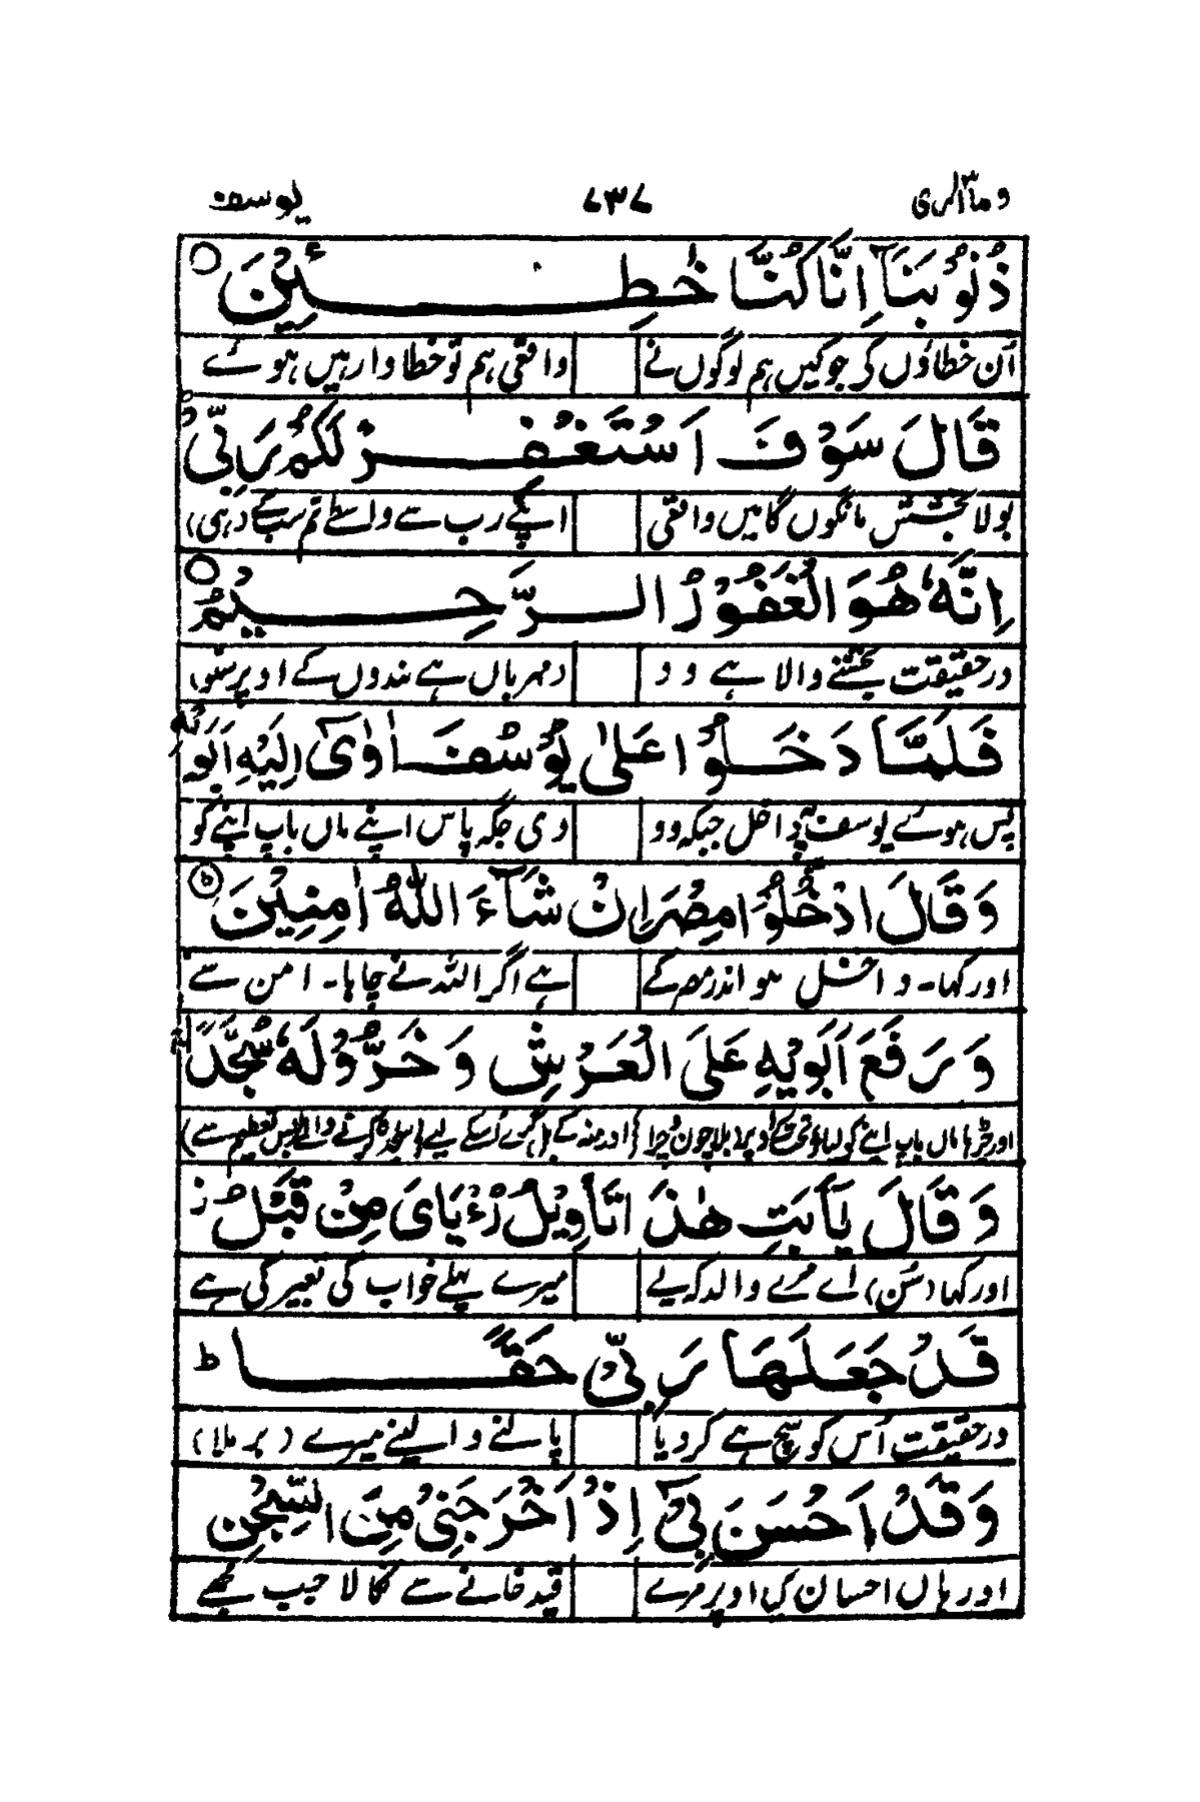 وما٣ابرئ ٧٣٧ يوسف
ذُنُوْبَنَآ اِنَّا كُنَّا خٰطِــِٕيْنَ ○
اُن خطاؤں کی جو کیں ہم لوگوں نے واقعی ہم تو خطاوار ہیں ہوئے
قَالَ سَوْفَ اَسْتَغْفِرُ لَكُمْ رَبِّىْ
بولا بخشش مانگوں گا میں واقعی اپنے رب سے واسطے تم سب کے (نہی)
اِنَّهٗ هُوَ الْغَفُوْرُ الرَّحِيْمُ ○
درحقیقت بخشنے والا ہے وہ ومہرباں ہے بندوں کے اوپر
فَلَمَّا دَخَلُوْا عَلٰى يُوْسُفَ اٰوٰٓى اِلَيْهِ اَبَوَيْهِ
پس ہوئے یوسف پہ داخل جبکہ وہ دی جگہ پاس اپنے ماں باپ اپنے کو
وَقَالَ ادْخُلُوْا مِصْرَ اِنْ شَآءَ اللّٰهُ اٰمِنِيْنَ ط
اور کہا۔ داخل ہو اندر مصر کے ہے اگر اللہ نے چاہا۔ امن سے
وَرَفَعَ اَبَوَيْهِ عَلَى الْعَرْشِ وَخَرُّوْا لَهٗ سُجَّدًا
اور چڑھا ماں باپ اپنے کو لیا تخت کے اوپر (بلا چون و چرا) اور منہ کے بل گرے اُسکے لیے سجدہ کرنے والے (بس تعظیم سے)
وَقَالَ يٰٓاَبَتِ هٰذَا تَاْوِيْلُ رُءْيَاىَ مِنْ قَبْلُ ز
اور کہا (سُن) اے مرے والد کہ یہ میرے پہلے خواب کی تعبیر کی ہے
قَدْ جَعَلَهَا رَبِّىْ حَقًّا ط
درحقیقت اُس کو سچ ہے کر دیا پالنے والے نے میرے (برملا)
وَقَدْ اَحْسَنَ بِىْٓ اِذْ اَخْرَجَنِىْ مِنَ السِّجْنِ
اور ہاں احسان کیا اوپر مرے قید خانے سے نکالا جب مجھے